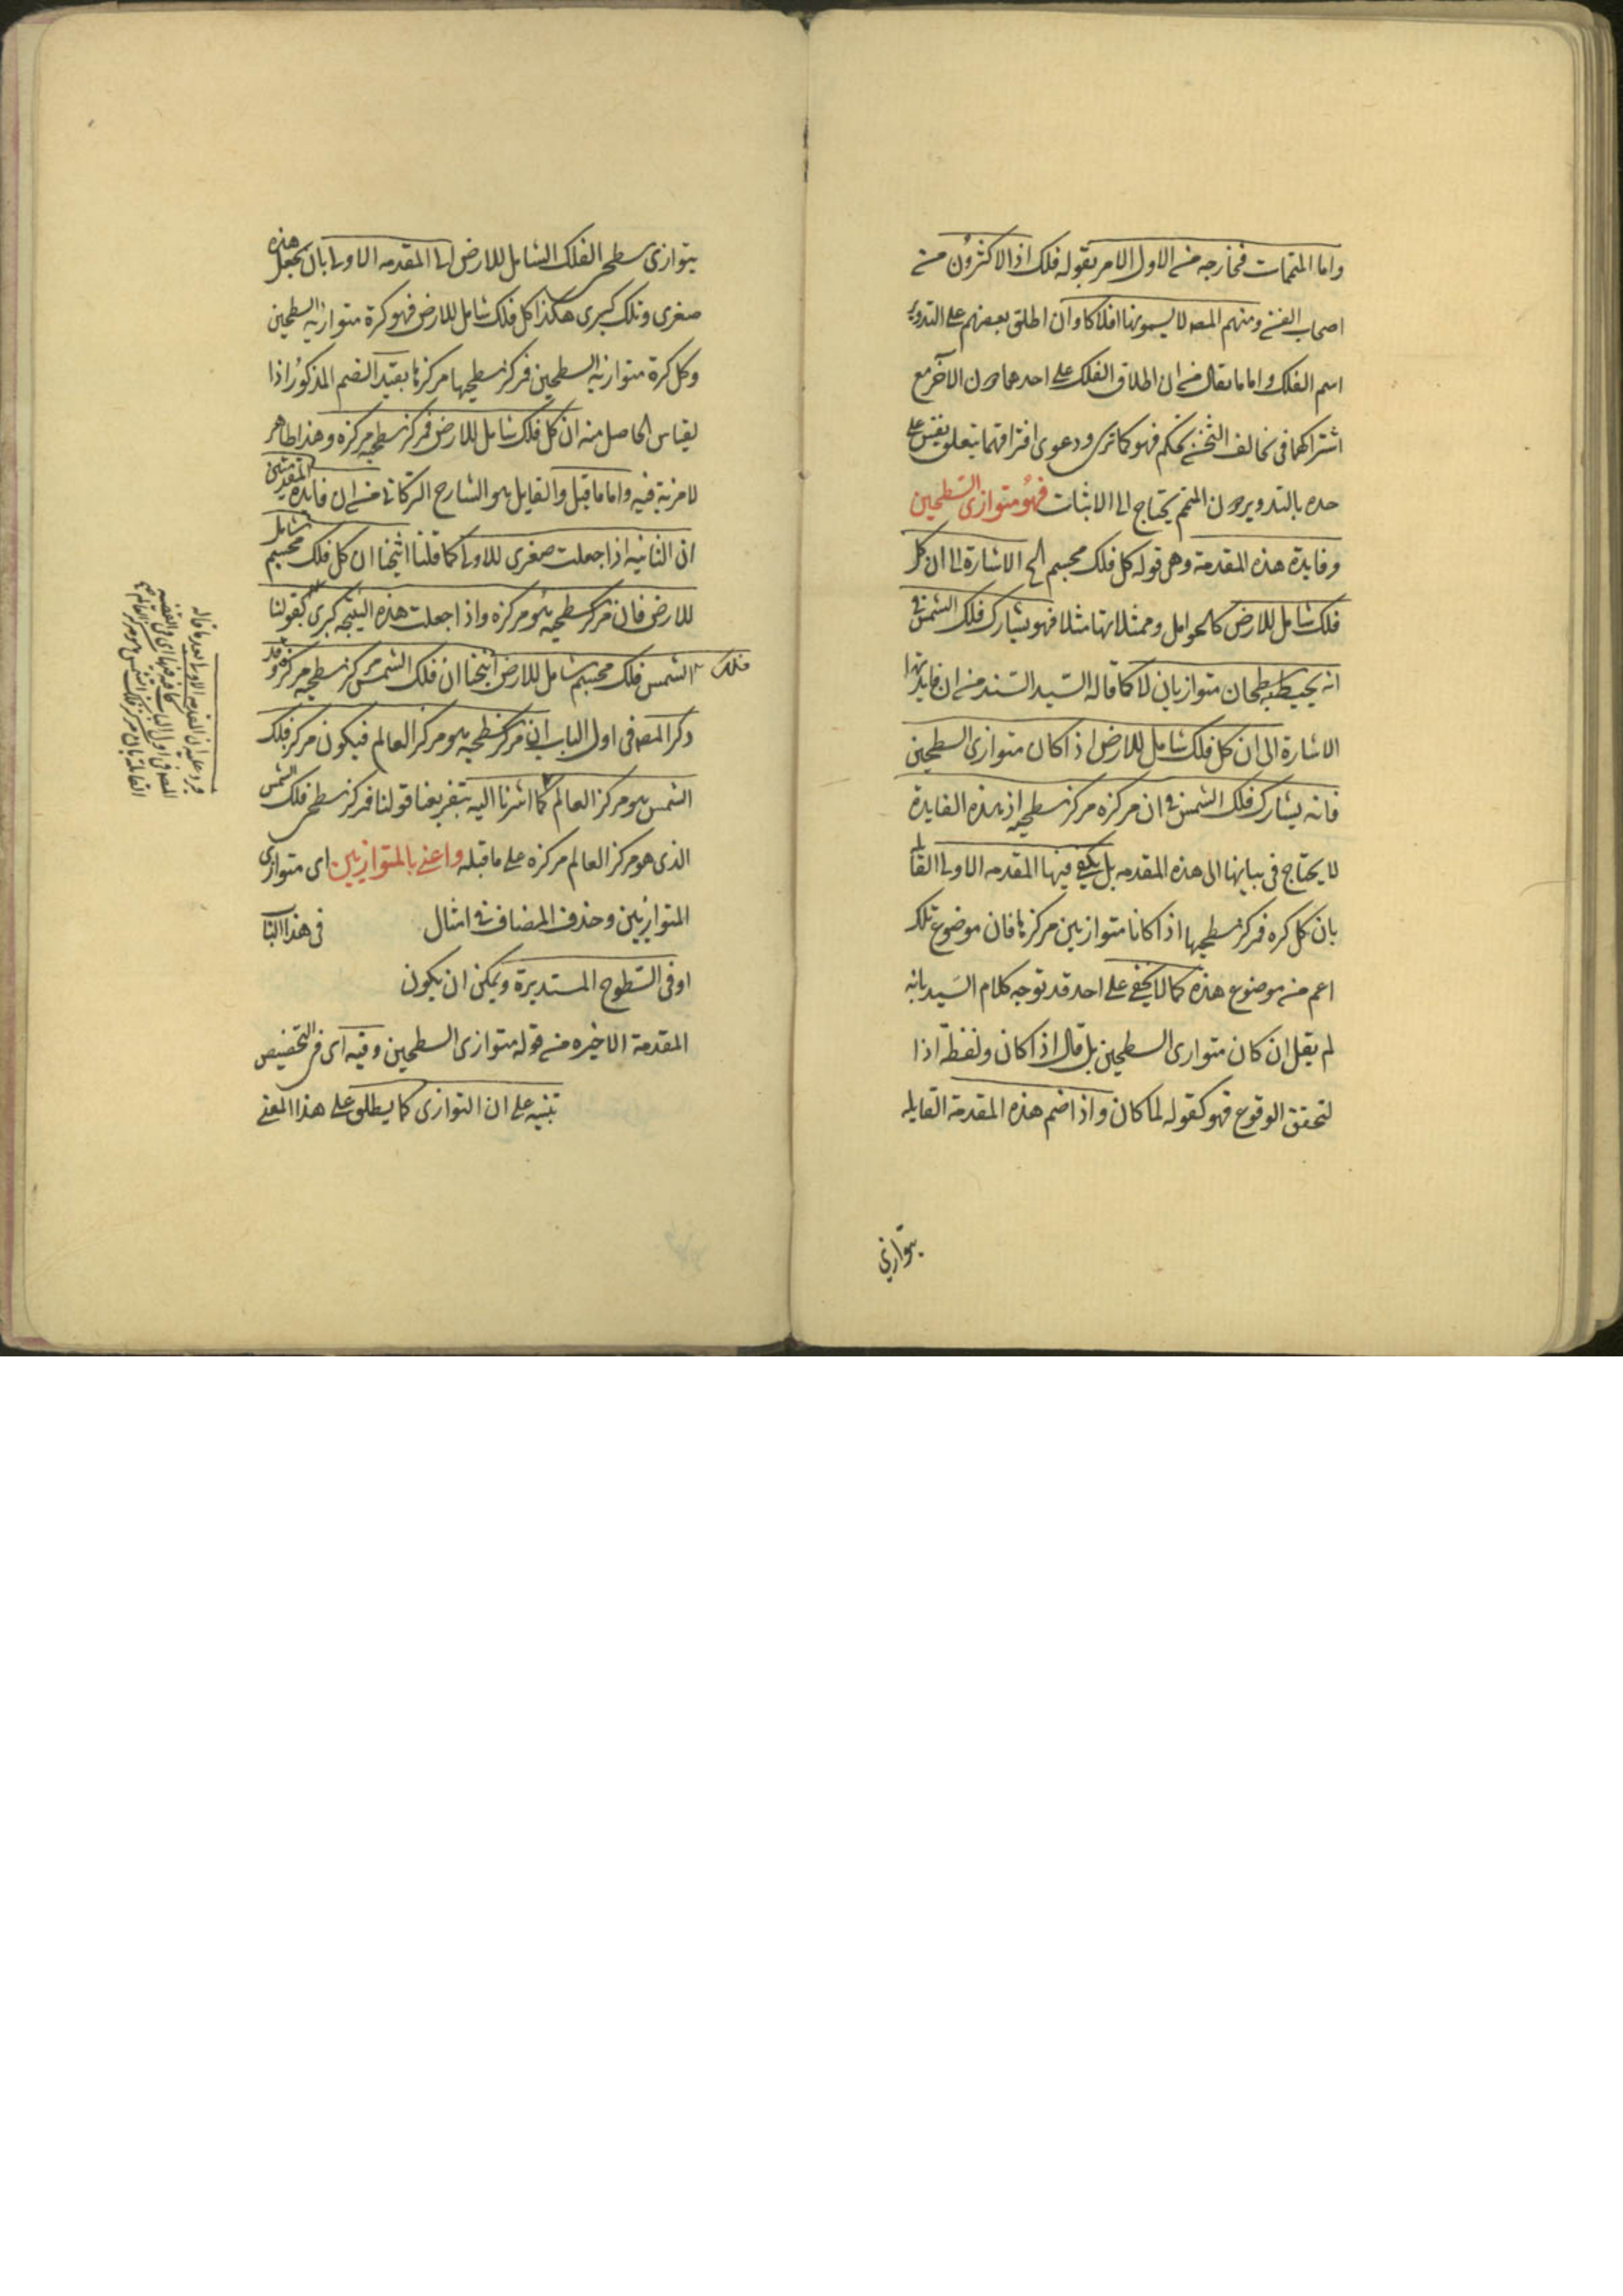 واما المتممات فخارجه من الاول الامر بقوله فلك اذ الاكثرون من
اصحاب الفن ومنهم المصه لا يسمونها افلاكا وان اطلق بعضهم على التدوير
اسم الفلك واما ما يقال من ان اطلاق الفلك على احدهما دون الآخر مع
اشتراكهما فى تخالف الثخن تحكم فهو كما ترى ودعوى افتراقهما بتعلق نفس على
حده بالتدوير دون المتمم يحتاج الى الاثبات فهو متوازى السطحين
وفايدة هذه المقدمة وهى قوله كل فلك مجسم الخ الاشارة الى ان كل
فلك شامل للارض كالحوامل وممثلاتها مثلا فهو يشارك فلك الشمس فى
انه يحيط به سطحان متوازيان لا كما قاله السيد السند من ان فايدتها
الاشارة الى ان كل فلك شامل للارض اذا كان متوازى السطحين
فانه يشارك فلك الشمس فى ان مركزه مركز سطحيه اذ هذه الفايدة
لا يحتاج فى بيانها الى هذه المقدمه بل يكفى فيها المقدمه الاولى القايله
بان كل كره فمركز سطحيها اذا كانا متوازيين مركزها فان موضوع تلك
اعم من موضوع هذه كما لا يخفى على احد قد توجه كلام السيد بانه
لم يقل ان كان متوازى السطحين بل قال اذا كان ولفظة اذا
لتحقق الوقوع فهو كقوله لما كان واذا ضم هذه المقدمة القايله
يتوازى
يتوازى سطحى الفلك الشامل للارض الى المقدمه الاولى بان يجعل هذه
صغرى وتلك كبرى هكذا كل فلك شامل للارض فهو كرة متوازيه السطحين
وكل كرة متوازيه السطحين فمركز سطحيها مركزها بقيد الضم المذكور اذا
لقياس الحاصل منه ان كل فلك شامل للارض فمركز سطحيه مركزه وهذا ظاهر
لا مزية فيه واما ما قيل والقايل هو الشارح التركانى من ان فايدة المقدمتين
ان الثانيه اذا جعلت صغرى للاولى كما قلنا انتجنا ان كل فلك مجسم شامل
للارض فان مركز سطحيه هو مركزه واذا جعلت هذه النتيجه كبرى لقولنا
فلك الشمس فلك مجسم شامل للارض انتجنا ان فلك الشمس مركز سطحيه مركزه وقد
ذكر المصه فى اول الباب ان مركز سطحيه هو مركز العالم فيكون مركز فلك
الشمس هو مركز العالم كما اشرنا اليه بتفريعنا قولنا فمركز سطحى فلك الشمس
الذى هو مركز العالم مركزه على ما قبله واعنى بالمتوازيين اى متوازى
المتوازيين وحذف المضاف فى امثال فى هذا الباب
او فى السطوح المستديرة ويمكن ان يكون
المقدمة الاخيره من قوله متوازى السطحين وفيه اى فى التخصيص
تنبيه على ان التوازى كما يطلق على هذا المعنى